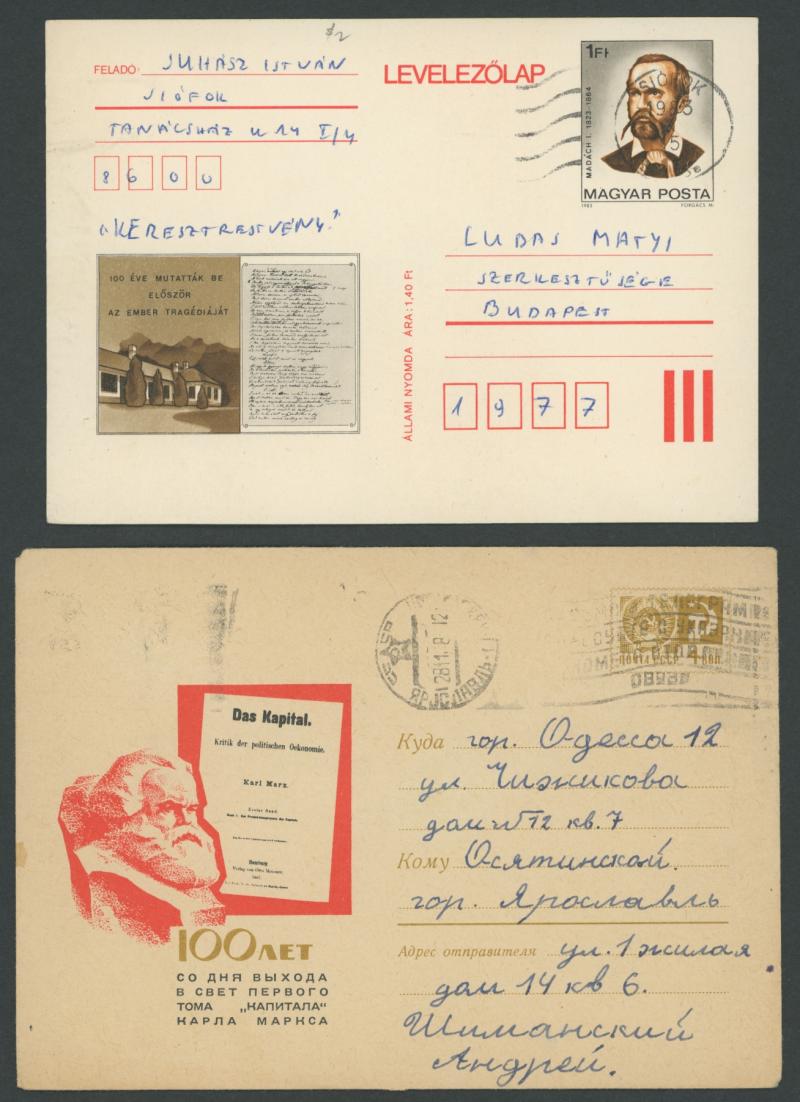 $2
FELADÓ: JUHÁSZ ISTVÁN
SIÓFOK
TANÁCSHÁZ U 14 I/4
8 6 0 0
"KERESZTRESTVÉNY."
LEVELEZŐLAP
1Ft
MADÁCH I. 1823-1864
SIÓFOK
MAGYAR POSTA
1983 FORGÁCS M.
100 ÉVE MUTATTÁK BE
ELŐSZÖR
AZ EMBER TRAGÉDIÁJÁT
ÁLLAMI NYOMDA ÁRA: 1,40 Ft
LUDAS MATYI
SZERKESZTŐSÉGE
BUDAPEST
1 9 7 7
СССР
ЯРОСЛАВЛЬ
ПОЧТА СССР 4 КОП.
Das Kapital.
Kritik der politischen Oekonomie.
Karl Marx.
Erster Band.
Hamburg
Verlag von Otto Meissner.
100 ЛЕТ
СО ДНЯ ВЫХОДА
В СВЕТ ПЕРВОГО
ТОМА „КАПИТАЛА“
КАРЛА МАРКСА
Куда гор. Одесса 12
ул. Чижикова
дом №12 кв. 7
Кому Осятинской.
гор. Ярославль
Адрес отправителя ул. 1 жилая
дом 14 кв 6.
Шиманский
Андрей.